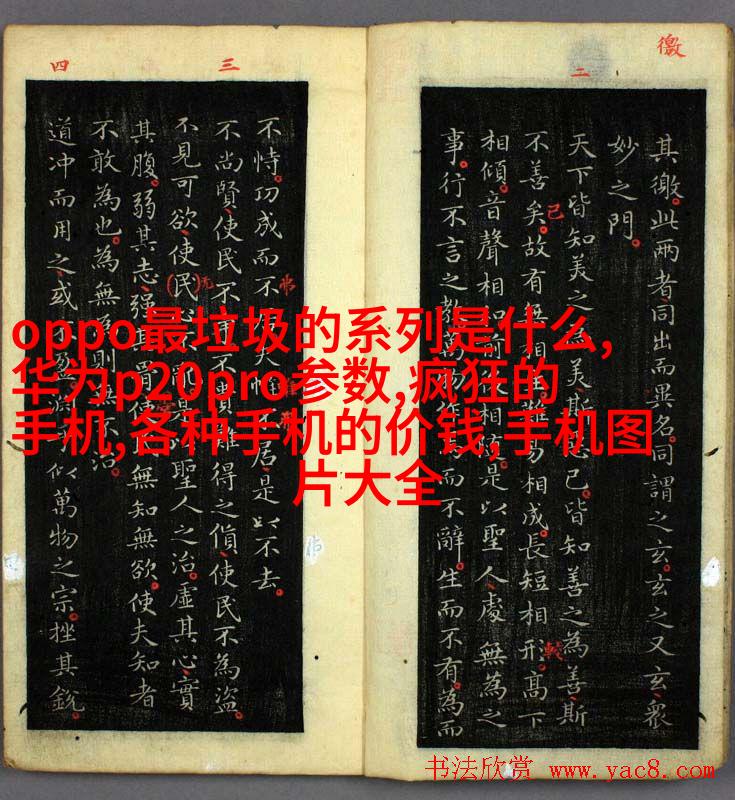 oppo最垃圾的系列是什么,
华为p20pro参数,疯狂的
手机,各种手机的价钱,手机图
片大全
徼
二
其徼此兩者同出而異名同謂之玄玄之又玄眾
妙之門
天下皆知美之為美斯惡已皆知善之為善斯
己
不善矣故有無相難易相成長短相形高下
相傾音聲相和前後相是以聖人處無為之
事行不言之教萬物作而不辭生而不有為而
三
不恃功成而不夫惟居是以不去
不尚賢使民不不貴難得之貨使民不為盜
无
不見可欲使民心不亂是聖人之治虛其心實
其腹弱其志強骨使無知無欲使夫知者
不敢為也為無為則無不治
四
道冲而用之或不盈似萬物之宗挫其銳
书法欣赏 www.yac8.com